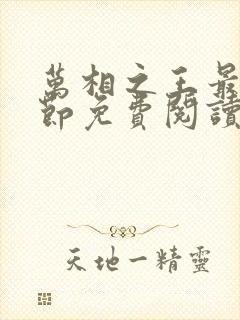 萬相之王最
節免費閱讀
天地一精靈